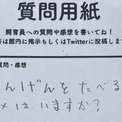 質問用紙
飼育員への質問や感想を書いてね!
館内に掲示もしくはTwitterに投稿しま
質問・感想
んげんをたべる
メはいますか?